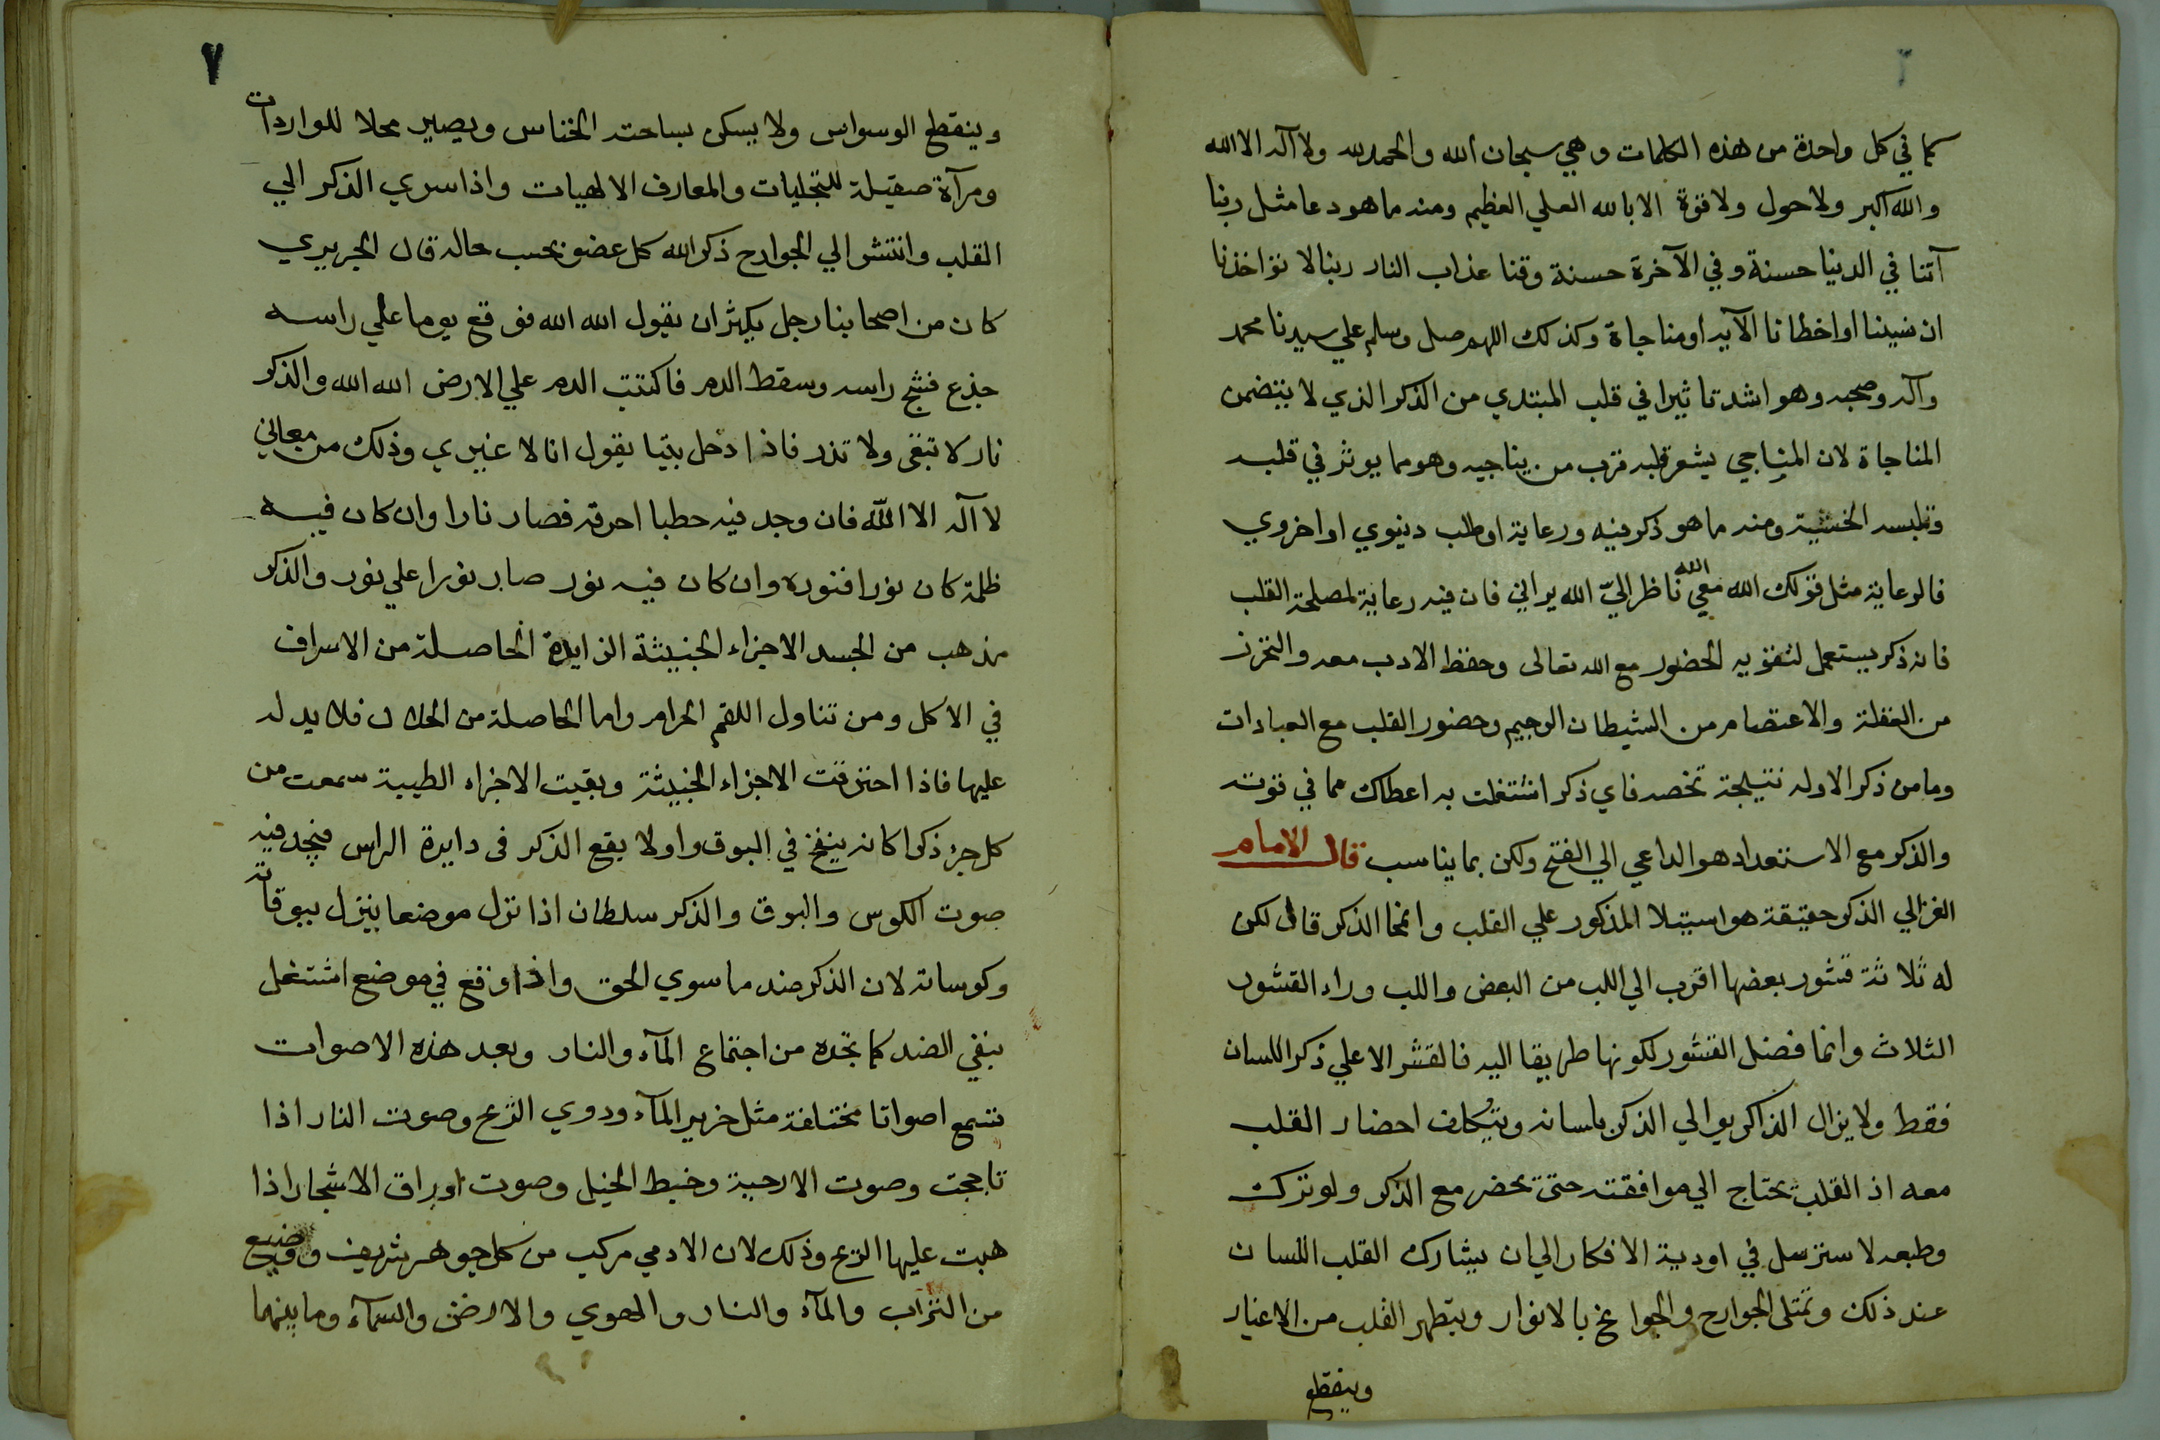 كما في كل واحدة من هذه الكلمات وهي سبحان الله والحمد لله ولا آله الا الله
والله اكبر ولا حول ولا قوة الا بالله العلي العظيم ومنه ما هو دعا مثل ربنا
آتنا في الدنيا حسنة وفي الآخرة حسنة وقنا عذاب النار ربنا لا تواخذنا
ان نسينا او اخطانا الآيه او مناجاة وكذلك اللهم صل وسلم علي سيدنا محمد
وآله وصحبه وهو اشد تاثيرا في قلب المبتدي من الذكر الذي لا يتضمن
المناجاة لان المناجي يشعر قلبه قرب من يناجيه وهو مما يوثر في قلبه
وتلبسه الخشية ومنه ما هو ذكر فيه ورعاية او طلب دنيوي او اخروي
فالرعاية مثل قولك الله معي الله ناظر اليّ الله يراني فان فيه رعاية لمصلحة القلب
فانه ذكر يستعمل لتقويه الحضور مع الله تعالى وحفظ الادب معه والتحرز
من الغفلة والاعتصام من الشيطان الرجيم وحضور القلب مع العبادات
وما من ذكر الا وله نتيجة تخصه فاي ذكر اشتغلت به اعطاك مما في قوته
والذكر مع الاستعداد هو الداعي الي الفتح ولكن بما يناسب قال الامام
الغزالي الذكر حقيقة هو استيلا المذكور علي القلب وانمحا الذكر قال لكن
له ثلاثة قشور بعضها اقرب الي اللب من البعض واللب وراء القشور
الثلاث وانما فضل القشور لكونها طريقا اليه فالقشر الاعلي ذكر اللسان
فقط ولا يزال الذاكر يوالي الذكر بلسانه ويتكلف احضار القلب
معه اذ القلب يحتاج الي موافقته حتى يحضر مع الذكر ولو ترك
وطبعه لاسترسل في اودية الافكار الي ان يشارك القلب اللسان
عند ذلك وتمتلي الجوارح والجوانح بالانوار ويتطهر القلب من الاغيار
وينقطع
٧
وينقطع الوسواس ولا يسكن بساحته الخناس ويصير محلا للواردات
ومرآة صقيلة للتجليات والمعارف الالهيات واذا سري الذكر الي
القلب وانتشر الي الجوارح ذكر الله كل عضو بحسب حاله قال الجريري
كان من اصحابنا رجل يكثر ان يقول الله الله فوقع يوما علي راسه
جذع فشج راسه وسقط الدم فاكتتب الدم علي الارض الله الله والذكر
نار لا تبقى ولا تذر فاذا دخل بيتا يقول انا لا غيري وذلك من معاني
لا آله الا الله فان وجد فيه حطبا احرقه فصار نارا وان كان فيه
ظلمة كان نورا فنوره وان كان فيه نور صار نورا علي نور والذكر
مذهب من الجسد الاجزاء الخبيثة الزايدة الحاصلة من الاسراف
في الاكل ومن تناول اللقم الحرام واما الحاصلة من الحلال فلا يد له
عليها فاذا احترقت الاجزاء الخبيثة وبقيت الاجزاء الطيبة سمعت من
كل جزء ذكرا كانه ينفخ في البوق واولا يقع الذكر فى دايرة الراس فيجد فيه
صوت الكوس والبوق والذكر سلطان اذا نزل موضعا ينزل ببوقاته
وكوساته لان الذكر ضد ما سوي الحق واذا وقع في موضع اشتغل
بنفي الضد كما تجده من اجتماع المآء والنار وبعد هذه الاصوات
تسمع اصواتا مختلفة مثل خرير المآء ودوي الريح وصوت النار اذا
تاججت وصوت الارحية وخبط الخيل وصوت اوراق الاشجار اذا
هبت عليها الريح وذلك لان الادمي مركب من كل جوهر شريف ووضيع
من التراب والمآء والنار والهوي والارض والسمآء وما بينهما